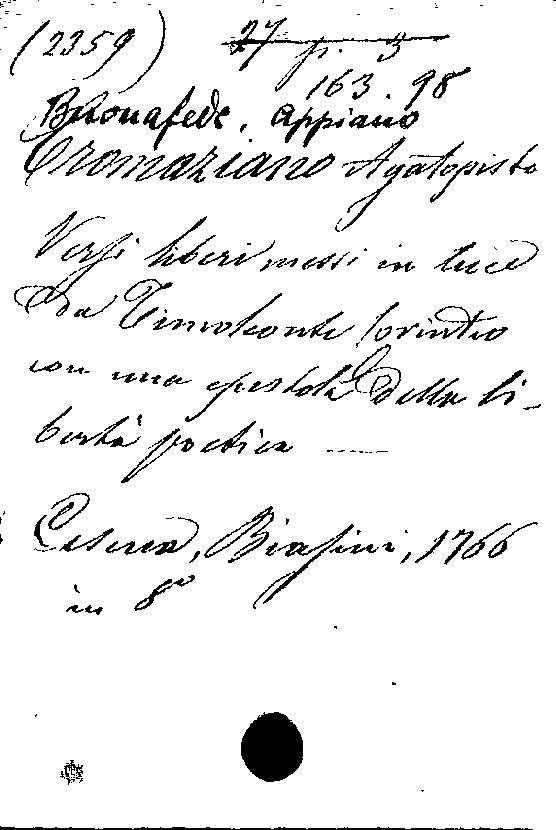 (2359)
27 p. 3
163.98
Buonafede, Appiano
Cromaziano Agatopisto
Versi liberi messi in luce
da Timoleonte Corintio
con una epistola della li-
bertà poetica —
Cesena, Biasini, 1766
in 8°